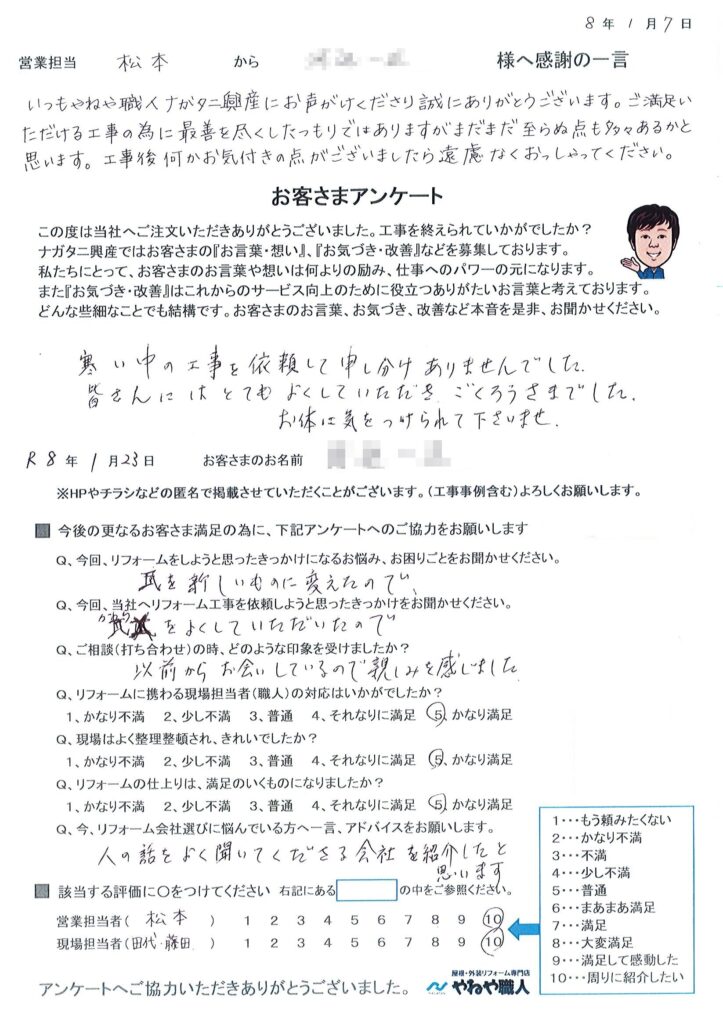 8年1月7日
営業担当 松本 から 様へ感謝の一言
いつもやねや職人ナガタニ興産にお声がけくださり誠にありがとうございます。ご満足い
ただける工事の為に最善を尽くしたつもりではありますがまだまだ至らぬ点も多々あるかと
思います。工事後何かお気付きの点がございましたら遠慮なくおっしゃってください。
お客さまアンケート
この度は当社へご注文いただきありがとうございました。工事を終えられていかがでしたか？
ナガタニ興産ではお客さまの『お言葉・想い』、『お気づき・改善』などを募集しております。
私たちにとって、お客さまのお言葉や想いは何よりの励み、仕事へのパワーの元になります。
また『お気づき・改善』はこれからのサービス向上のために役立つありがたいお言葉と考えております。
どんな些細なことでも結構です。お客さまのお言葉、お気づき、改善など本音を是非、お聞かせください。
寒い中の工事を依頼して申し分けありませんでした.
皆さんにはとてもよくしていただき ごくろうさまでした.
お体に気をつけられて下さいませ.
R8年1月23日 お客さまのお名前
※HPやチラシなどの匿名で掲載させていただくことがございます。（工事事例含む）よろしくお願いします。
今後の更なるお客さま満足の為に、下記アンケートへのご協力をお願いします
Q、今回、リフォームをしようと思ったきっかけになるお悩み、お困りごとをお聞かせください。
を新しいものに変えたので、
Q、今回、当社へリフォーム工事を依頼しようと思ったきっかけをお聞かせください。
をよくしていただいたので
Q、ご相談（打ち合わせ）の時、どのような印象を受けましたか？
以前からお会いしているので親しみを感じました
Q、リフォームに携わる現場担当者（職人）の対応はいかがでしたか？
1、かなり不満 2、少し不満 3、普通 4、それなりに満足 5、かなり満足
Q、現場はよく整理整頓され、きれいでしたか？
1、かなり不満 2、少し不満 3、普通 4、それなりに満足 5、かなり満足
Q、リフォームの仕上りは、満足のいくものになりましたか？
1、かなり不満 2、少し不満 3、普通 4、それなりに満足 5、かなり満足
Q、今、リフォーム会社選びに悩んでいる方へ一言、アドバイスをお願いします。
人の話をよく聞いてくださる会社を紹介したと
思います
該当する評価に○をつけてください 右記にある の中をご参照ください。
営業担当者（ 松本 ） 1 2 3 4 5 6 7 8 9 10
現場担当者（田代・藤田 ） 1 2 3 4 5 6 7 8 9 10
1・・・もう頼みたくない
2・・・かなり不満
3・・・不満
4・・・少し不満
5・・・普通
6・・・まあまあ満足
7・・・満足
8・・・大変満足
9・・・満足して感動した
10・・・周りに紹介したい
アンケートへご協力いただきありがとうございました。
屋根・外装リフォーム専門店
やねや職人